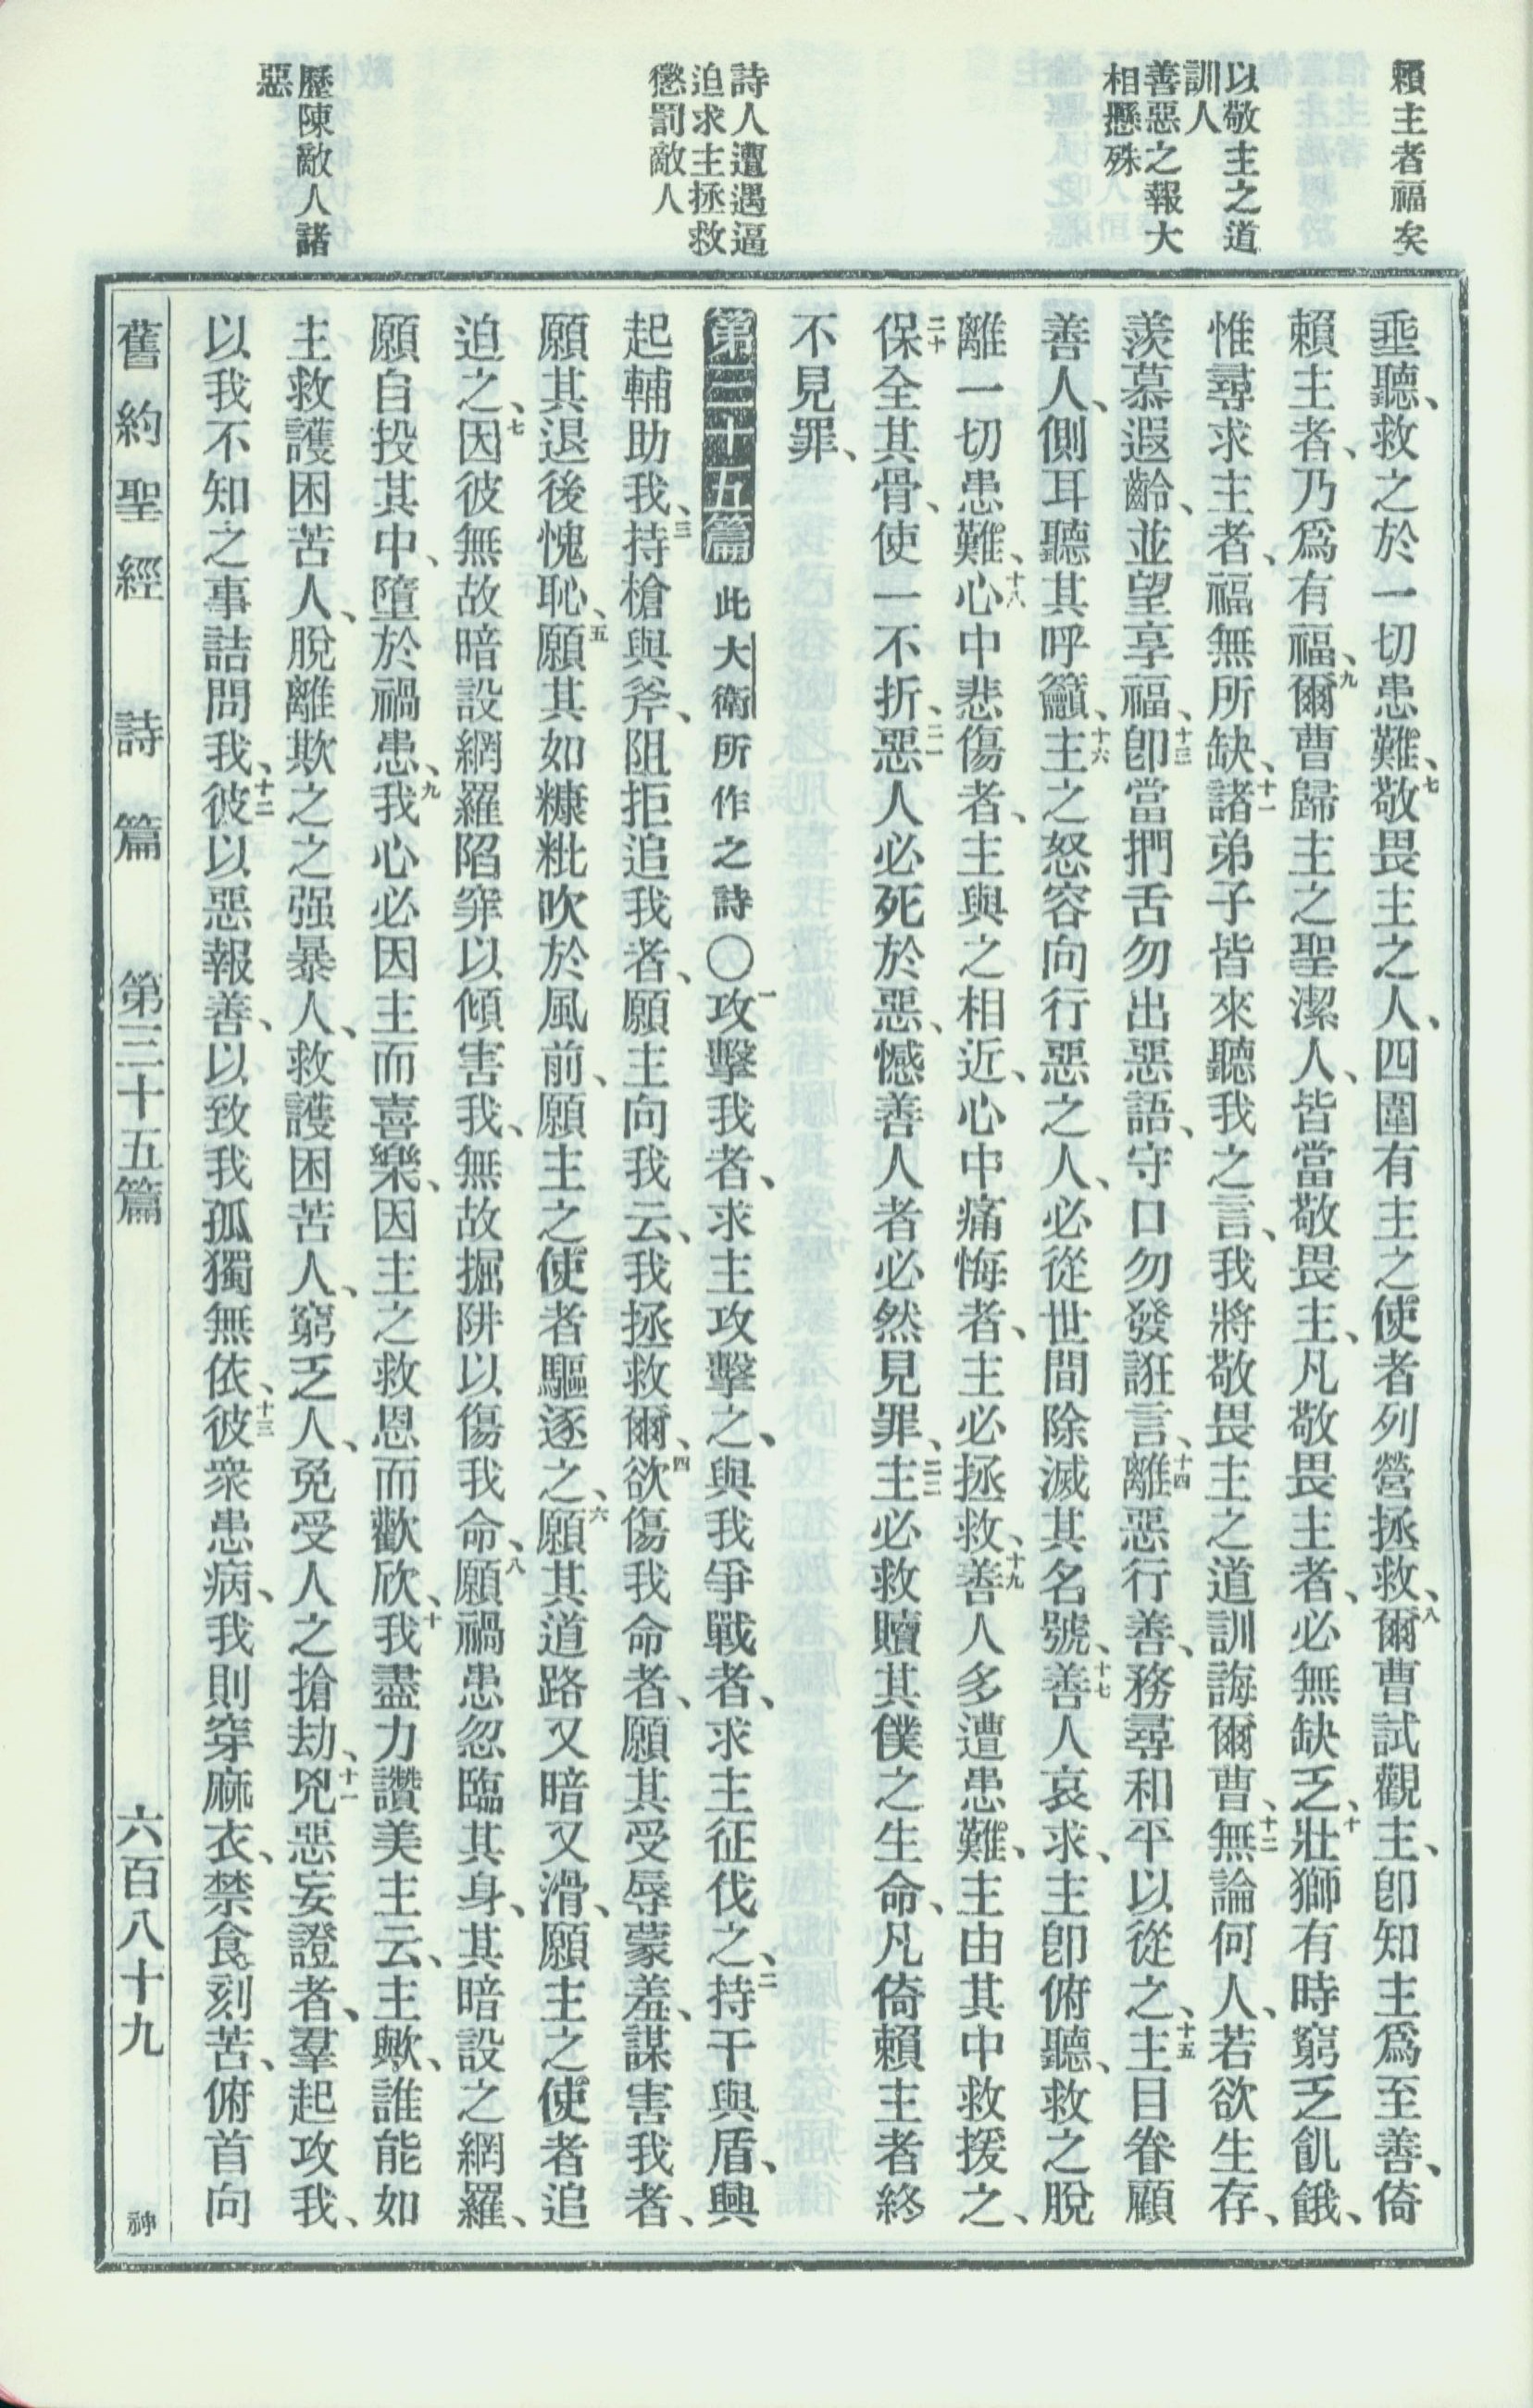 賴主者福矣
以敬主之道
訓人
善惡之報大
相懸殊
詩人遭遇逼
迫求主拯救
懲罰敵人
歷陳敵人諸
惡
垂聽、救之於一切患難、七敬畏主之人、四圍有主之使者列營拯救、八爾曹試觀主、卽知主爲至善、倚
賴主者、乃爲有福、九爾曹歸主之聖潔人、皆當敬畏主、凡敬畏主者、必無缺乏、十壯獅有時窮乏飢餓、
惟尋求主者、福無所缺、十一諸弟子皆來聽我之言、我將敬畏主之道訓誨爾曹、十二無論何人、若欲生存、
羨慕遐齡、並望享福、十三卽當捫舌勿出惡語、守口勿發誑言、十四離惡行善、務尋和平以從之、十五主目眷顧
善人、側耳聽其呼籲、十六主之怒容向行惡之人、必從世間除滅其名號、十七善人哀求、主卽俯聽、救之脫
離一切患難、十八心中悲傷者、主與之相近、心中痛悔者、主必拯救、十九善人多遭患難、主由其中救援之、
二十保全其骨、使一不折、二一惡人必死於惡、憾善人者必然見罪、二二主必救贖其僕之生命、凡倚賴主者終
不見罪、
第三十五篇 此大衛所作之詩〇一攻擊我者、求主攻擊之、與我爭戰者、求主征伐之、二持干與盾、興
起輔助我、三持槍與斧、阻拒追我者、願主向我云、我拯救爾、四欲傷我命者、願其受辱蒙羞、謀害我者、
願其退後愧恥、五願其如糠粃吹於風前、願主之使者驅逐之、六願其道路又暗又滑、願主之使者追
迫之、七因彼無故暗設網羅陷穽以傾害我、無故掘阱以傷我命、八願禍患忽臨其身、其暗設之網羅、
願自投其中、墮於禍患、九我心必因主而喜樂、因主之救恩而歡欣、十我盡力讚美主云、主歟、誰能如
主救護困苦人、脫離欺之之强暴人、救護困苦人、窮乏人、免受人之搶劫、十一兇惡妄證者、羣起攻我、
以我不知之事詰問我、十二彼以惡報善、以致我孤獨無依、十三彼衆患病、我則穿麻衣、禁食刻苦、俯首向
舊約聖經 詩篇 第三十五篇 六百八十九 神